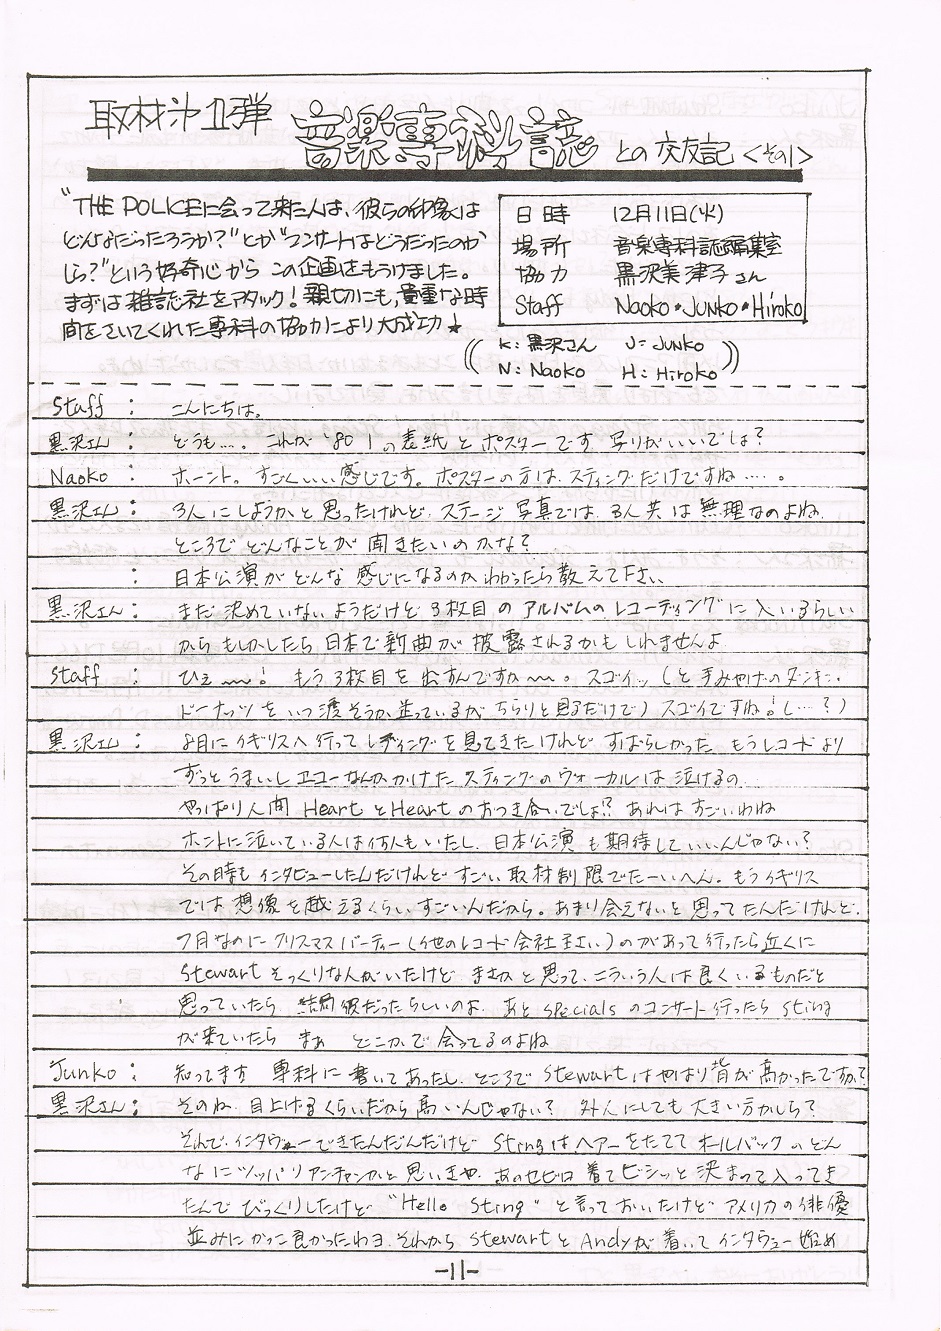 取材第1弾 音楽専科誌との交友記<その1>
"THE POLICEに会って来た人は、彼らの印象は
どんなだったろうか?"とか"コンサートはどうだったのか
しら?"という好奇心から この企画をもうけました。
まずは雑誌社をアタック! 親切にも、貴重な時
間をさいてくれた専科の協力により大成功★
日時 12月11日(火)
場所 音楽専科誌編集室
協力 黒沢美津子さん
Staff Naoko・JUNKO・Hiroko
K:黒沢さん J=JUNKO
N:Naoko H:HiroKo
Staff: こんにちは。
黒沢さん: どうも…. これが '80 1の表紙とポスターです 写りがいいでしょ?
Naoko: ホーント。すごくいい感じです。ポスターの方は、スティングだけですね…..
黒沢さん: 3人にしようかと思ったけれど、ステージ写真では、3人共は無理なのよね.
ところで どんなことが 聞きたいのかな?
: 日本公演がどんな感じになるのかわかったら教えて下さい
黒沢さん: まだ決めていないようだけど 3枚目のアルバムのレコーディングに入いるらしい
からもしかしたら日本で新曲が披露されるかもしれませんよ
Staff: ひぇ〜! もう3枚目を出すんですか〜。スゴイッ(と手みやげのダンキン・
ドーナッツをいつ渡そうか迷っているがちらりと見るだけで)スゴイですね!(…?)
黒沢さん: 8月にイギリスへ行ってレディングを見てきたけれど すばらしかった もうレコードより
ずっとうまいし エコーなんかかけたスティングのヴォーカルは泣けるの.
やっぱり人間 HeartとHeartのおつき合いでしょ!? あれはすごいわね
ホントに泣いている人は何人もいたし、日本公演も期待していいんじゃない?
その時も インタビューしたんだけれど すごい取材制限でたーいへん。もうイギリス
では想像を越えるくらいすごいんだから。あまり会えないと思ってたんだけれど、
7月なのに クリスマスパーティー(他のレコード会社主さい)のがあって行ったら近くに
Stewart そっくりな人がいたけど まさかと思って、こういう人は良くいるものだと
思っていたら 結局彼だったらしいのよ. あと Specials のコンサート行ったら Sting
が来ていたら まぁ どこかで会ってるのよね
Junko: 知ってます 専科に書いてあったし. ところで Stewartはやはり背が高かったですか?
黒沢さん: そのね 目上げるくらいだから高いんじゃない? 外人にしても大きい方かしら?
それで、インタヴューできたんだんだけど Stingはヘアーをたてて オールバックのどん
なにツッパリアンチャンかと思いきや、あのセビロ着てビシッと決まって入ってき
たんで びっくりしたけど "Hello Sting" と言っておいたけど アメリカの俳優
並みにかっこ良かったわヨ それから StewartとAndyが着いて インタヴュー始め
-11-